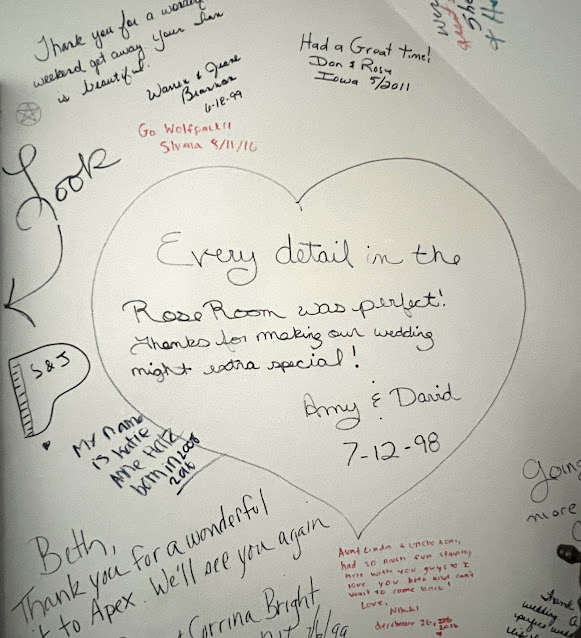 Thank you for a wonderful
weekend get away your Inn
is beautiful.
Warren & Jeane
Brannan
6-18-99
Had a Great Time!
Don & Rosy
Iowa 5/2011
Go Wolfpack!!
8/11/16
Look
Every detail in the
Rose Room was perfect!
Thanks for making our wedding
might extra special!
Amy & David
7-12-98
S & J
My name
is Katie
Anne
born in 2008
2016
Beth,
Thank you for a wonderful
to Apex. We'll see you again
Corrina Bright
Aunt Linda & Uncle
had so much fun staying
here with you guys & I
love you both and can't
wait to come back!
Love,
Nikki
december 26, 2016
Going
more
Thank
wedding